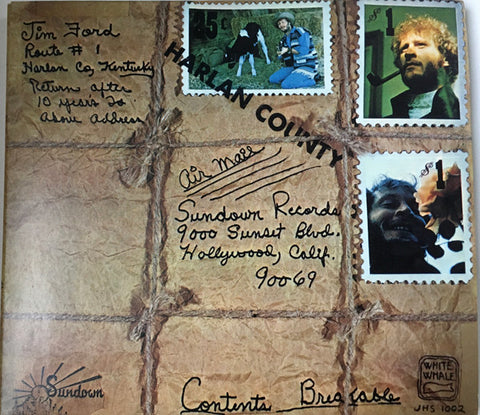 Jim Ford
Route # 1
Harlan Co, Kentucky
Return after
10 years to
Above Address
25¢
$1
$1
HARLAN COUNTY
Air Mail
Sundown Records
9000 Sunset Blvd.
Hollywood, Calif.
90069
Sundown
Contents Breakable
WHITE
WHALE
JHS 1002